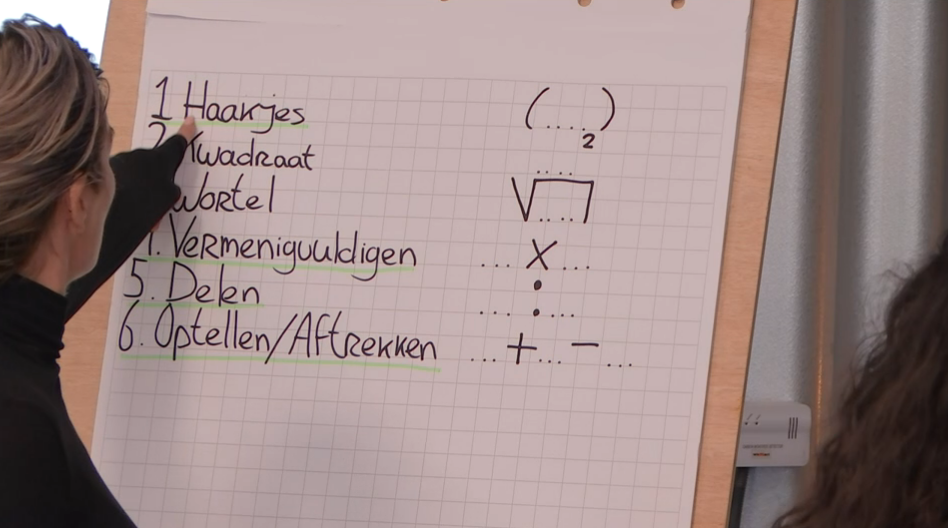 1 Haakjes (....)
2 Kwadraat ....²
Wortel √....
4. Vermenigvuldigen ... X ...
5. Delen ... : ...
6. Optellen/Aftrekken ... + ... − ...